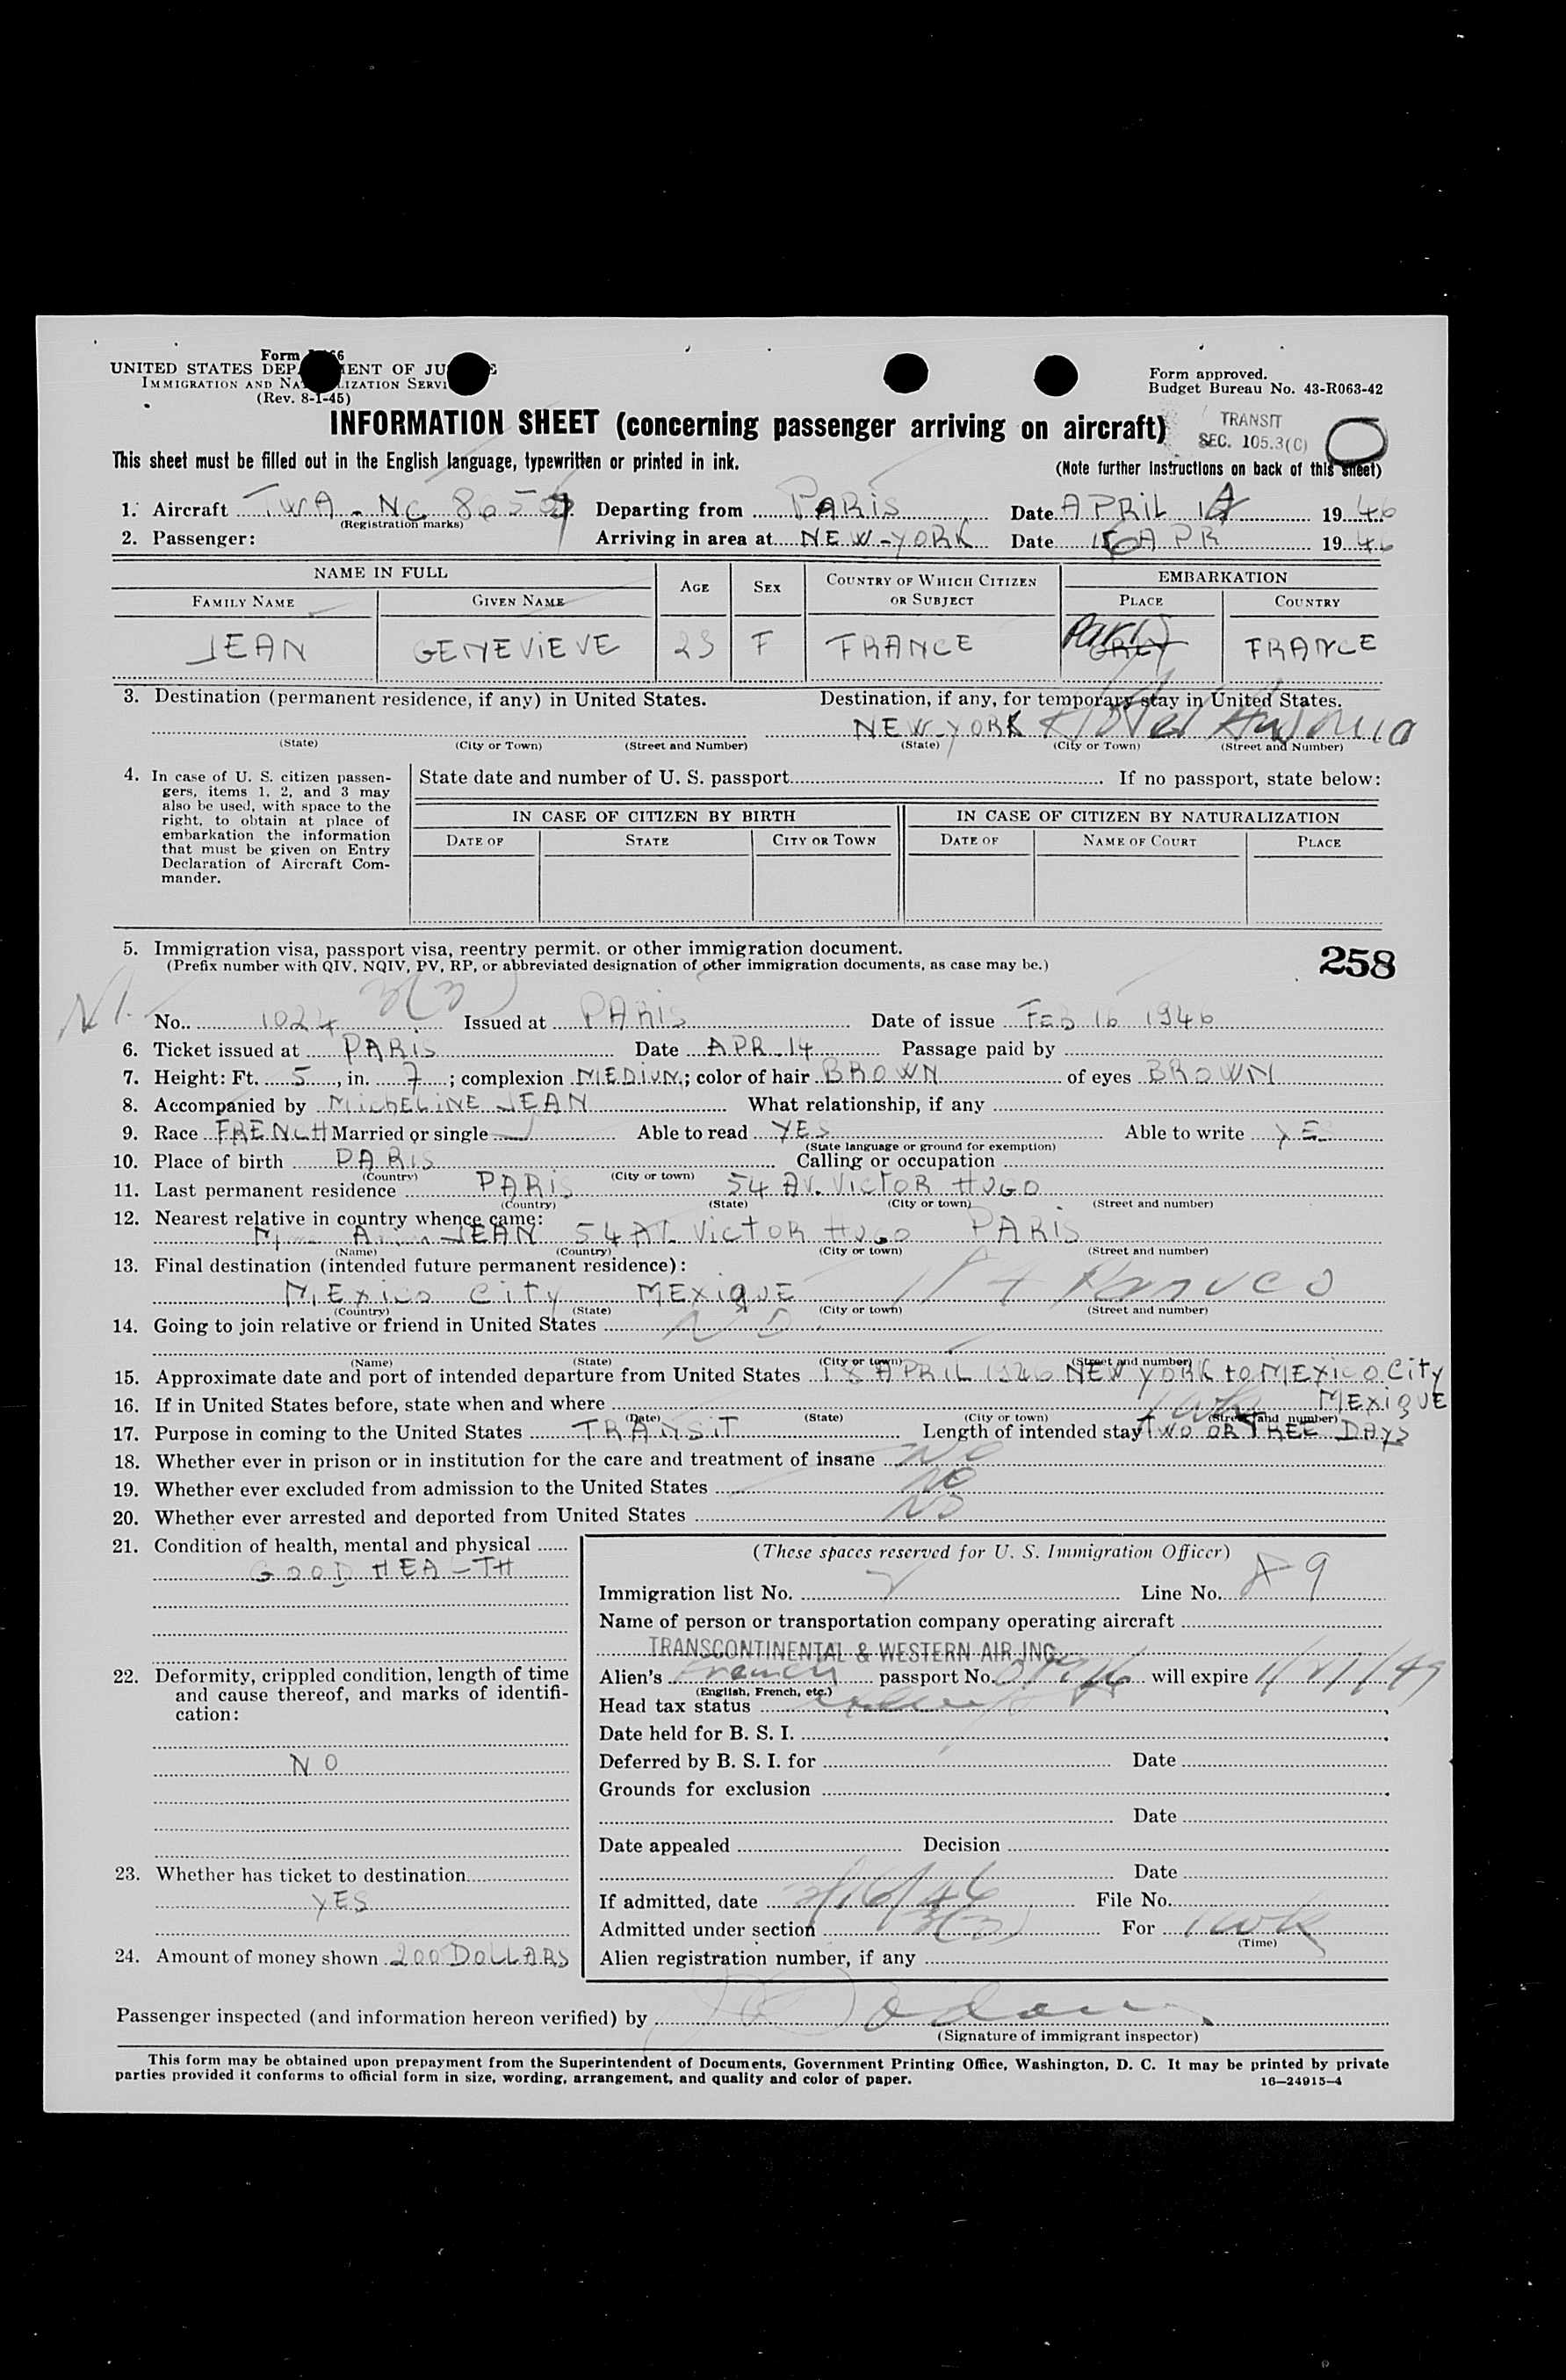 Form I-466
UNITED STATES DEPARTMENT OF JUSTICE
IMMIGRATION AND NATURALIZATION SERVICE
(Rev. 8-1-45)
Form approved.
Budget Bureau No. 43-R063-42
INFORMATION SHEET (concerning passenger arriving on aircraft)
TRANSIT
SEC. 105.3(C)
This sheet must be filled out in the English language, typewritten or printed in ink.
(Note further instructions on back of this sheet)
1. Aircraft TWA - NC Departing from PARIS Date APRIL 1946
(Registration marks)
2. Passenger: Arriving in area at NEW-YORK Date APR 1946
NAME IN FULL AGE SEX COUNTRY OF WHICH CITIZEN OR SUBJECT EMBARKATION
FAMILY NAME GIVEN NAME PLACE COUNTRY
JEAN GENEVIEVE 23 F FRANCE Paris FRANCE
3. Destination (permanent residence, if any) in United States. Destination, if any, for temporary stay in United States.
NEW-YORK Hotel Ansonia
(State) (City or Town) (Street and Number) (State) (City or Town) (Street and Number)
4. In case of U. S. citizen passengers, items 1, 2, and 3 may also be used, with space to the right, to obtain at place of embarkation the information that must be given on Entry Declaration of Aircraft Commander.
State date and number of U. S. passport If no passport, state below:
IN CASE OF CITIZEN BY BIRTH IN CASE OF CITIZEN BY NATURALIZATION
DATE OF STATE CITY OR TOWN DATE OF NAME OF COURT PLACE
5. Immigration visa, passport visa, reentry permit, or other immigration document.
(Prefix number with QIV, NQIV, PV, RP, or abbreviated designation of other immigration documents, as case may be.)
258
3(3)
No. 1024 Issued at PARIS Date of issue FEB 16 1946
6. Ticket issued at PARIS Date APR. 14 Passage paid by
7. Height: Ft. 5, in. 7; complexion MEDIUM; color of hair BROWN of eyes BROWN
8. Accompanied by MICHELINE JEAN What relationship, if any
9. Race FRENCH Married or single Able to read YES Able to write YES
(State language or ground for exemption)
10. Place of birth PARIS Calling or occupation
(Country) (City or town)
11. Last permanent residence PARIS 54 AV. VICTOR HUGO
(Country) (State) (City or town) (Street and number)
12. Nearest relative in country whence came:
JEAN 54 AV. VICTOR HUGO PARIS
(Name) (Country) (City or town) (Street and number)
13. Final destination (intended future permanent residence):
MExico City MExiqUE Panuco
(Country) (State) (City or town) (Street and number)
14. Going to join relative or friend in United States NO
(Name) (State) (City or town) (Street and number)
15. Approximate date and port of intended departure from United States 18 APRIL 1946 NEW YORK to MExico City
MExiqUE
16. If in United States before, state when and where
1 wk
(Date) (State) (City or town) (Street and number)
17. Purpose in coming to the United States TRANSIT Length of intended stay TWO OR THREE DAYS
18. Whether ever in prison or in institution for the care and treatment of insane NO
19. Whether ever excluded from admission to the United States NO
20. Whether ever arrested and deported from United States NO
21. Condition of health, mental and physical
GOOD HEALTH
(These spaces reserved for U. S. Immigration Officer)
Immigration list No. Line No. 9
Name of person or transportation company operating aircraft
TRANSCONTINENTAL & WESTERN AIR INC.
22. Deformity, crippled condition, length of time and cause thereof, and marks of identification:
NO
Alien's French passport No. will expire 1/21/49
(English, French, etc.)
Head tax status
Date held for B. S. I.
Deferred by B. S. I. for Date
Grounds for exclusion
Date
Date appealed Decision
23. Whether has ticket to destination
YES
Date
If admitted, date File No.
Admitted under section 3(3) For 1 wk
(Time)
24. Amount of money shown 200 DOLLARS
Alien registration number, if any
Passenger inspected (and information hereon verified) by
(Signature of immigrant inspector)
This form may be obtained upon prepayment from the Superintendent of Documents, Government Printing Office, Washington, D. C. It may be printed by private
parties provided it conforms to official form in size, wording, arrangement, and quality and color of paper.
16—24915-4